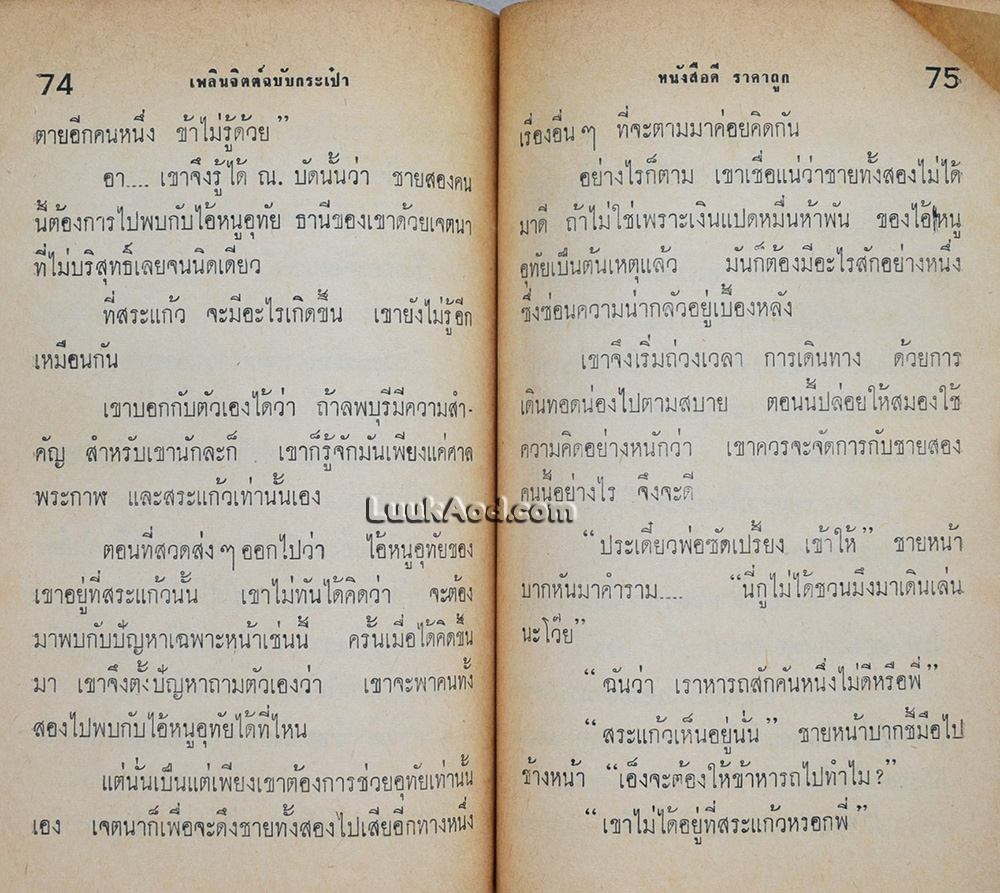 74
เพลินจิตต์ฉบับกระเป๋า
ตายอีกคนหนึ่ง ข้าไม่รู้ด้วย”
อา.... เขาจึงรู้ได้ ณ. บัดนั้นว่า ชายสองคน
นี้ต้องการไปพบกับไอ้หนูอุทัย ธานีของเขาด้วยเจตนา
ที่ไม่บริสุทธิ์เลยจนนิดเดียว
ที่สระแก้ว จะมีอะไรเกิดขึ้น เขายังไม่รู้อีก
เหมือนกัน
เขาบอกกับตัวเองได้ว่า ถ้าลพบุรีมีความสำ-
คัญ สำหรับเขานักละก็ เขาก็รู้จักมันเพียงแค่ศาล
พระกาฬ และสระแก้วเท่านั้นเอง
ตอนที่สวดส่ง ๆ ออกไปว่า ไอ้หนูอุทัยของ
เขาอยู่ที่สระแก้วนั้น เขาไม่ทันได้คิดว่า จะต้อง
มาพบกับปัญหาเฉพาะหน้าเช่นนี้ ครั้นเมื่อได้คิดขึ้น
มา เขาจึงตั้งปัญหาถามตัวเองว่า เขาจะพาคนทั้ง
สองไปพบกับไอ้หนูอุทัยได้ที่ไหน
แต่นั่นเป็นแต่เพียงเขาต้องการช่วยอุทัยเท่านั้น
เอง เจตนาก็เพื่อจะดึงชายทั้งสองไปเสียอีกทางหนึ่ง
หนังสือดี ราคาถูก
75
เรื่องอื่น ๆ ที่จะตามมาค่อยคิดกัน
อย่างไรก็ตาม เขาเชื่อแน่ว่าชายทั้งสองไม่ได้
มาดี ถ้าไม่ใช่เพราะเงินแปดหมื่นห้าพัน ของไอ้หนู
อุทัยเป็นต้นเหตุแล้ว มันก็ต้องมีอะไรสักอย่างหนึ่ง
ซึ่งซ่อนความน่ากลัวอยู่เบื้องหลัง
เขาจึงเริ่มถ่วงเวลา การเดินทาง ด้วยการ
เดินทอดน่องไปตามสบาย ตอนนี้ปล่อยให้สมองใช้
ความคิดอย่างหนักว่า เขาควรจะจัดการกับชายสอง
คนนี้อย่างไร จึงจะดี
“ประเดี๋ยวพ่อซัดเปรี้ยง เข้าให้” ชายหน้า
บากหันมาคำราม.... “นี่กูไม่ได้ชวนมึงมาเดินเล่น
นะโว๊ย”
“ฉันว่า เราหารถสักคันหนึ่งไม่ดีหรือพี่”
“สระแก้วเห็นอยู่นั่น” ชายหน้าบากชี้มือไป
ข้างหน้า “เอ็งจะต้องให้ข้าหารถไปทำไม?”
“เขาไม่ได้อยู่ที่สระแก้วหรอกพี่”
LuukAod.com